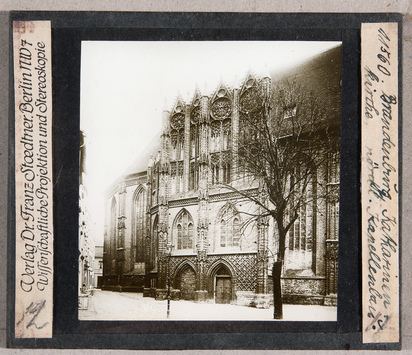 Verlag Dr. Franz Stoedtner, Berlin NW7
Wissenschaftliche Projektion und Stereoskopie
12
11560 Brandenburg Katharinen-
kirche nördl. Kapellenbau.